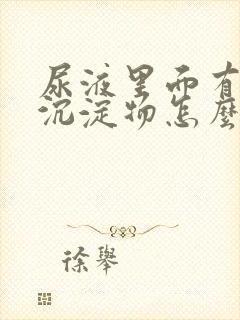 尿液里面有
沉淀物怎麽
徐舉